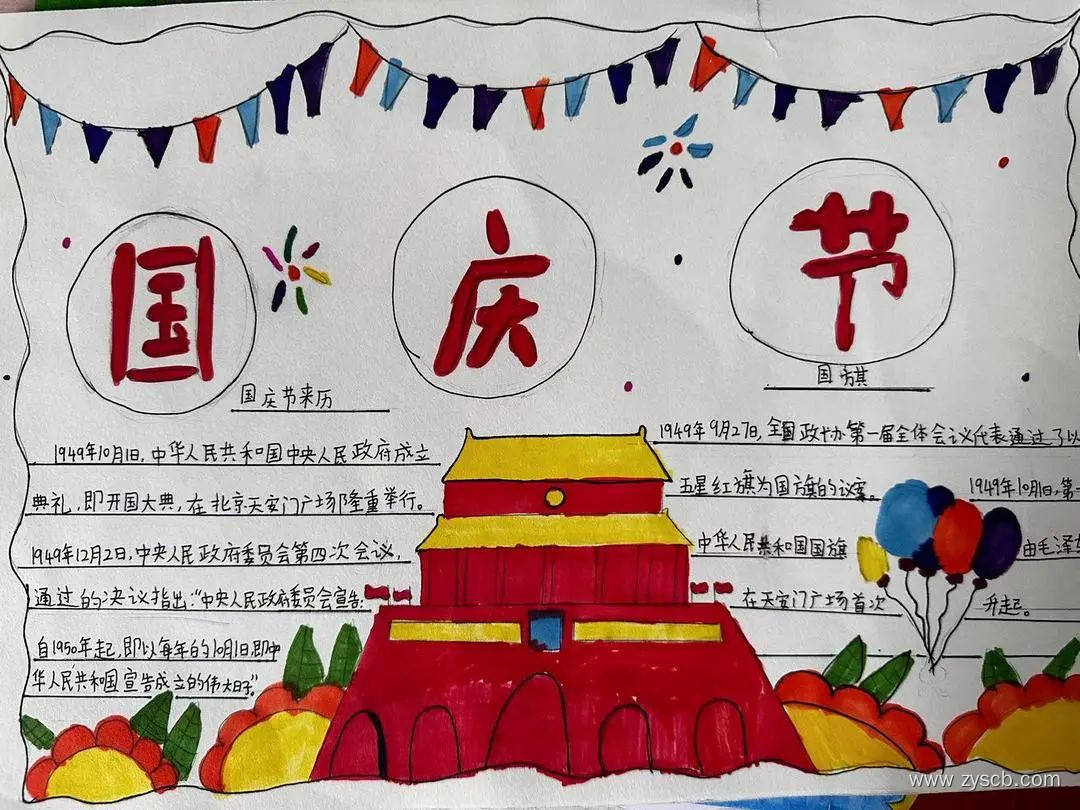 国 庆 节
国庆节来历
1949年10月1日,中华人民共和国中央人民政府成立
典礼,即开国大典,在北京天安门广场隆重举行。
1949年12月2日,中央人民政府委员会第四次会议,
通过的决议指出:“中央人民政府委员会宣告:
自1950年起,即以每年的10月1日,即中
华人民共和国宣告成立的伟大日子”。
国旗
1949年9月27日,全国政协第一届全体会议代表通过了以
五星红旗为国旗的议案。 1949年10月1日,第一
中华人民共和国国旗 由毛泽
在天安门广场首次 升起。
www.zyscb.com